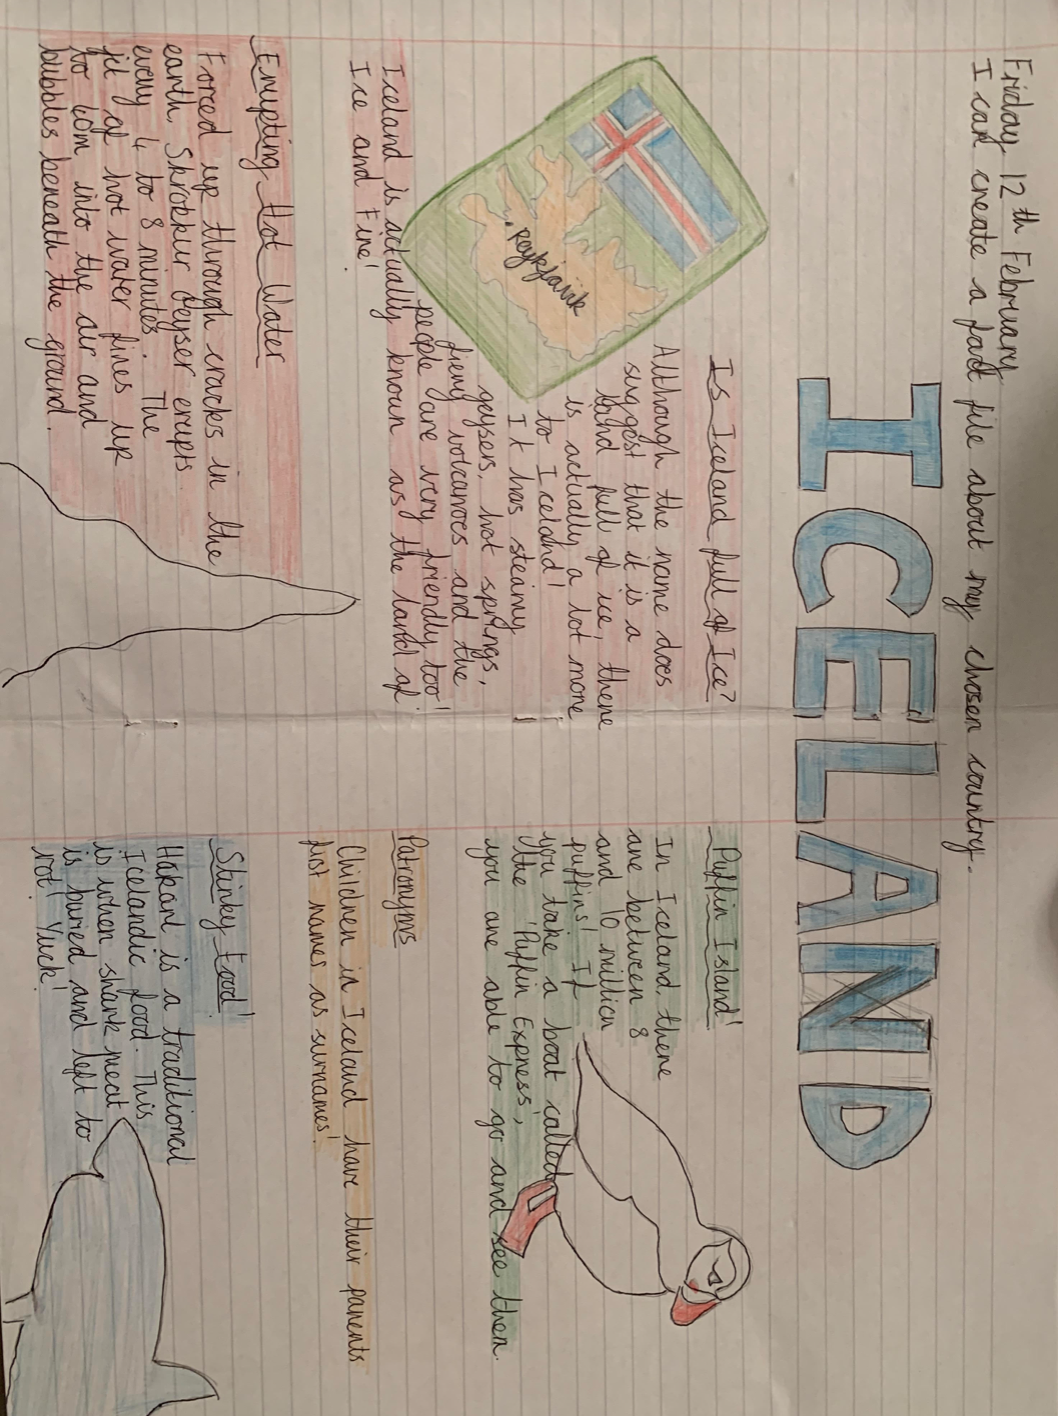 Friday 12th February
I can create a fact file about my chosen country.
ICELAND
Is Iceland full of Ice?
Although the name does
suggest that it is a
land full of ice, there
is actually a lot more
to Iceland!
It has steamy
geysers, hot springs,
fiery volcanoes and the
people are very friendly too!
Iceland is actually known as the land of
Ice and Fire!
Reykjavik
Erupting Hot Water
Forced up through cracks in the
earth, Strokkur Geyser erupts
every 4 to 8 minutes. The
jit of hot water fires up
to 40m into the air and
bubbles beneath the ground.
Puffin Island!
In Iceland, there
are between 8
and 10 million
puffins! If
you take a boat called
the 'Puffin Express',
you are able to go and see them.
Patronyms
Children in Iceland have their parents
first names as surnames!
Stinky food!
Hákarl is a traditional
Icelandic food. This
is when shark meat
is buried and left to
rot! Yuck!